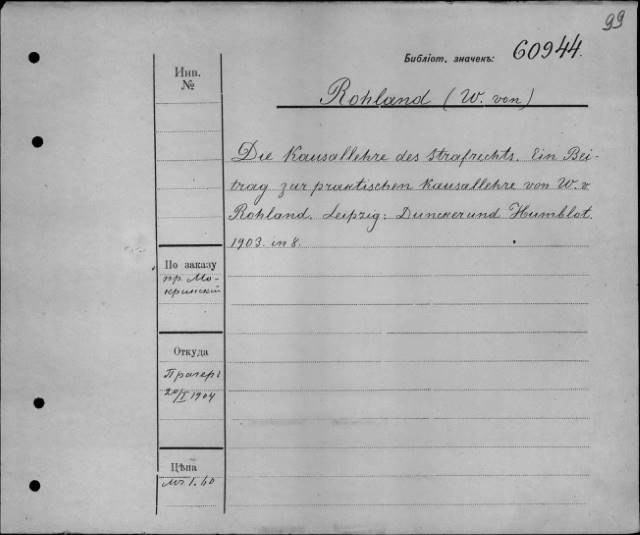 99
Библіот. значекъ: 60944.
Инв.
№
Rohland (W. von)
Die Kausallehre des Strafrechts. Ein Bei-
trag zur praktischen Kausallehre von W. v
Rohland. Leipzig: Duncker und Humblot.
1903. in 8.
По заказу
пр. Мо-
кринскій
Откуда
Прагеръ
20/I 1904
Цѣна
Mk 1.60